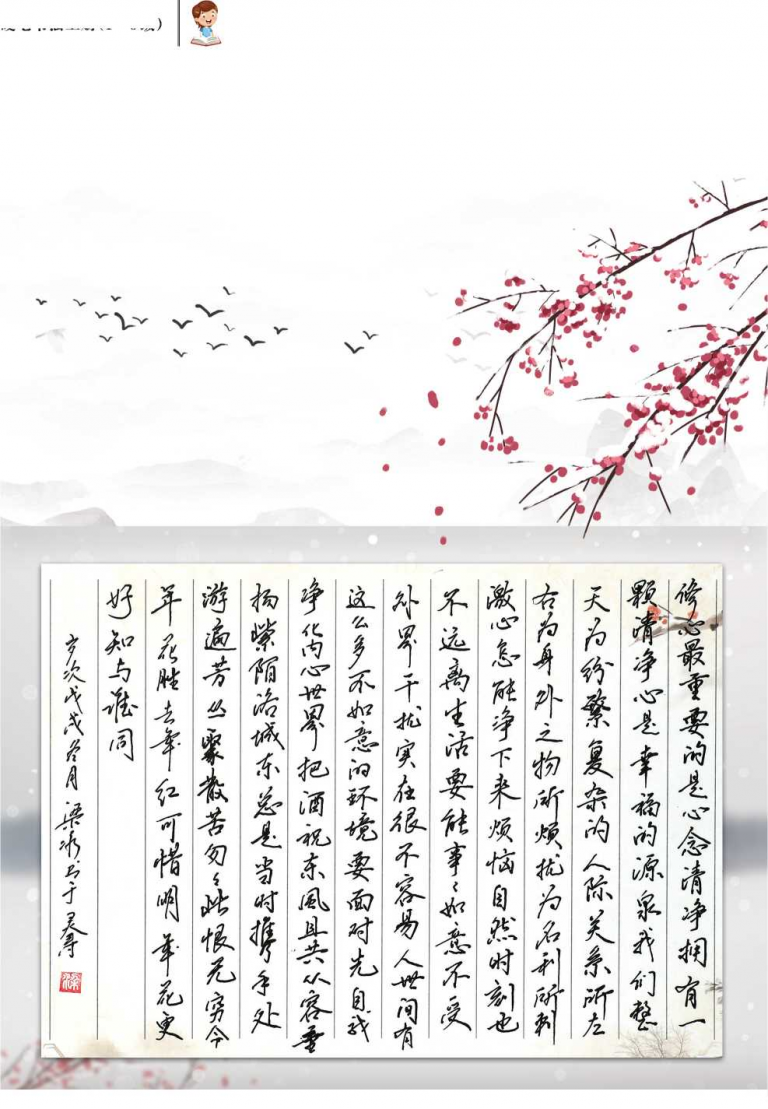 修心最重要的是心念清净拥有一
颗清净心是幸福的源泉我们整
天为纷繁复杂的人际关系所左
右为身外之物所烦扰为名利所刺
激心怎能净下来烦恼自然时刻也
不远离生活要能事々如意不受
外界干扰实在很不容易人世间有
这么多不如意的环境要面对先自我
净化内心世界把酒祝东风且共从容垂
杨紫陌洛城东总是当时携手处
游遍芳丛聚散苦匆々此恨无穷今
年花胜去年红可惜明年花更
好知与谁同
岁次戊戌 月梁 书于